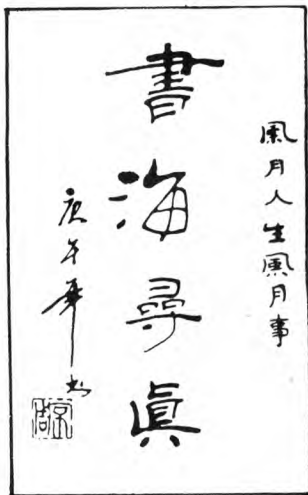 風月人生風月事
書海尋眞
庚午